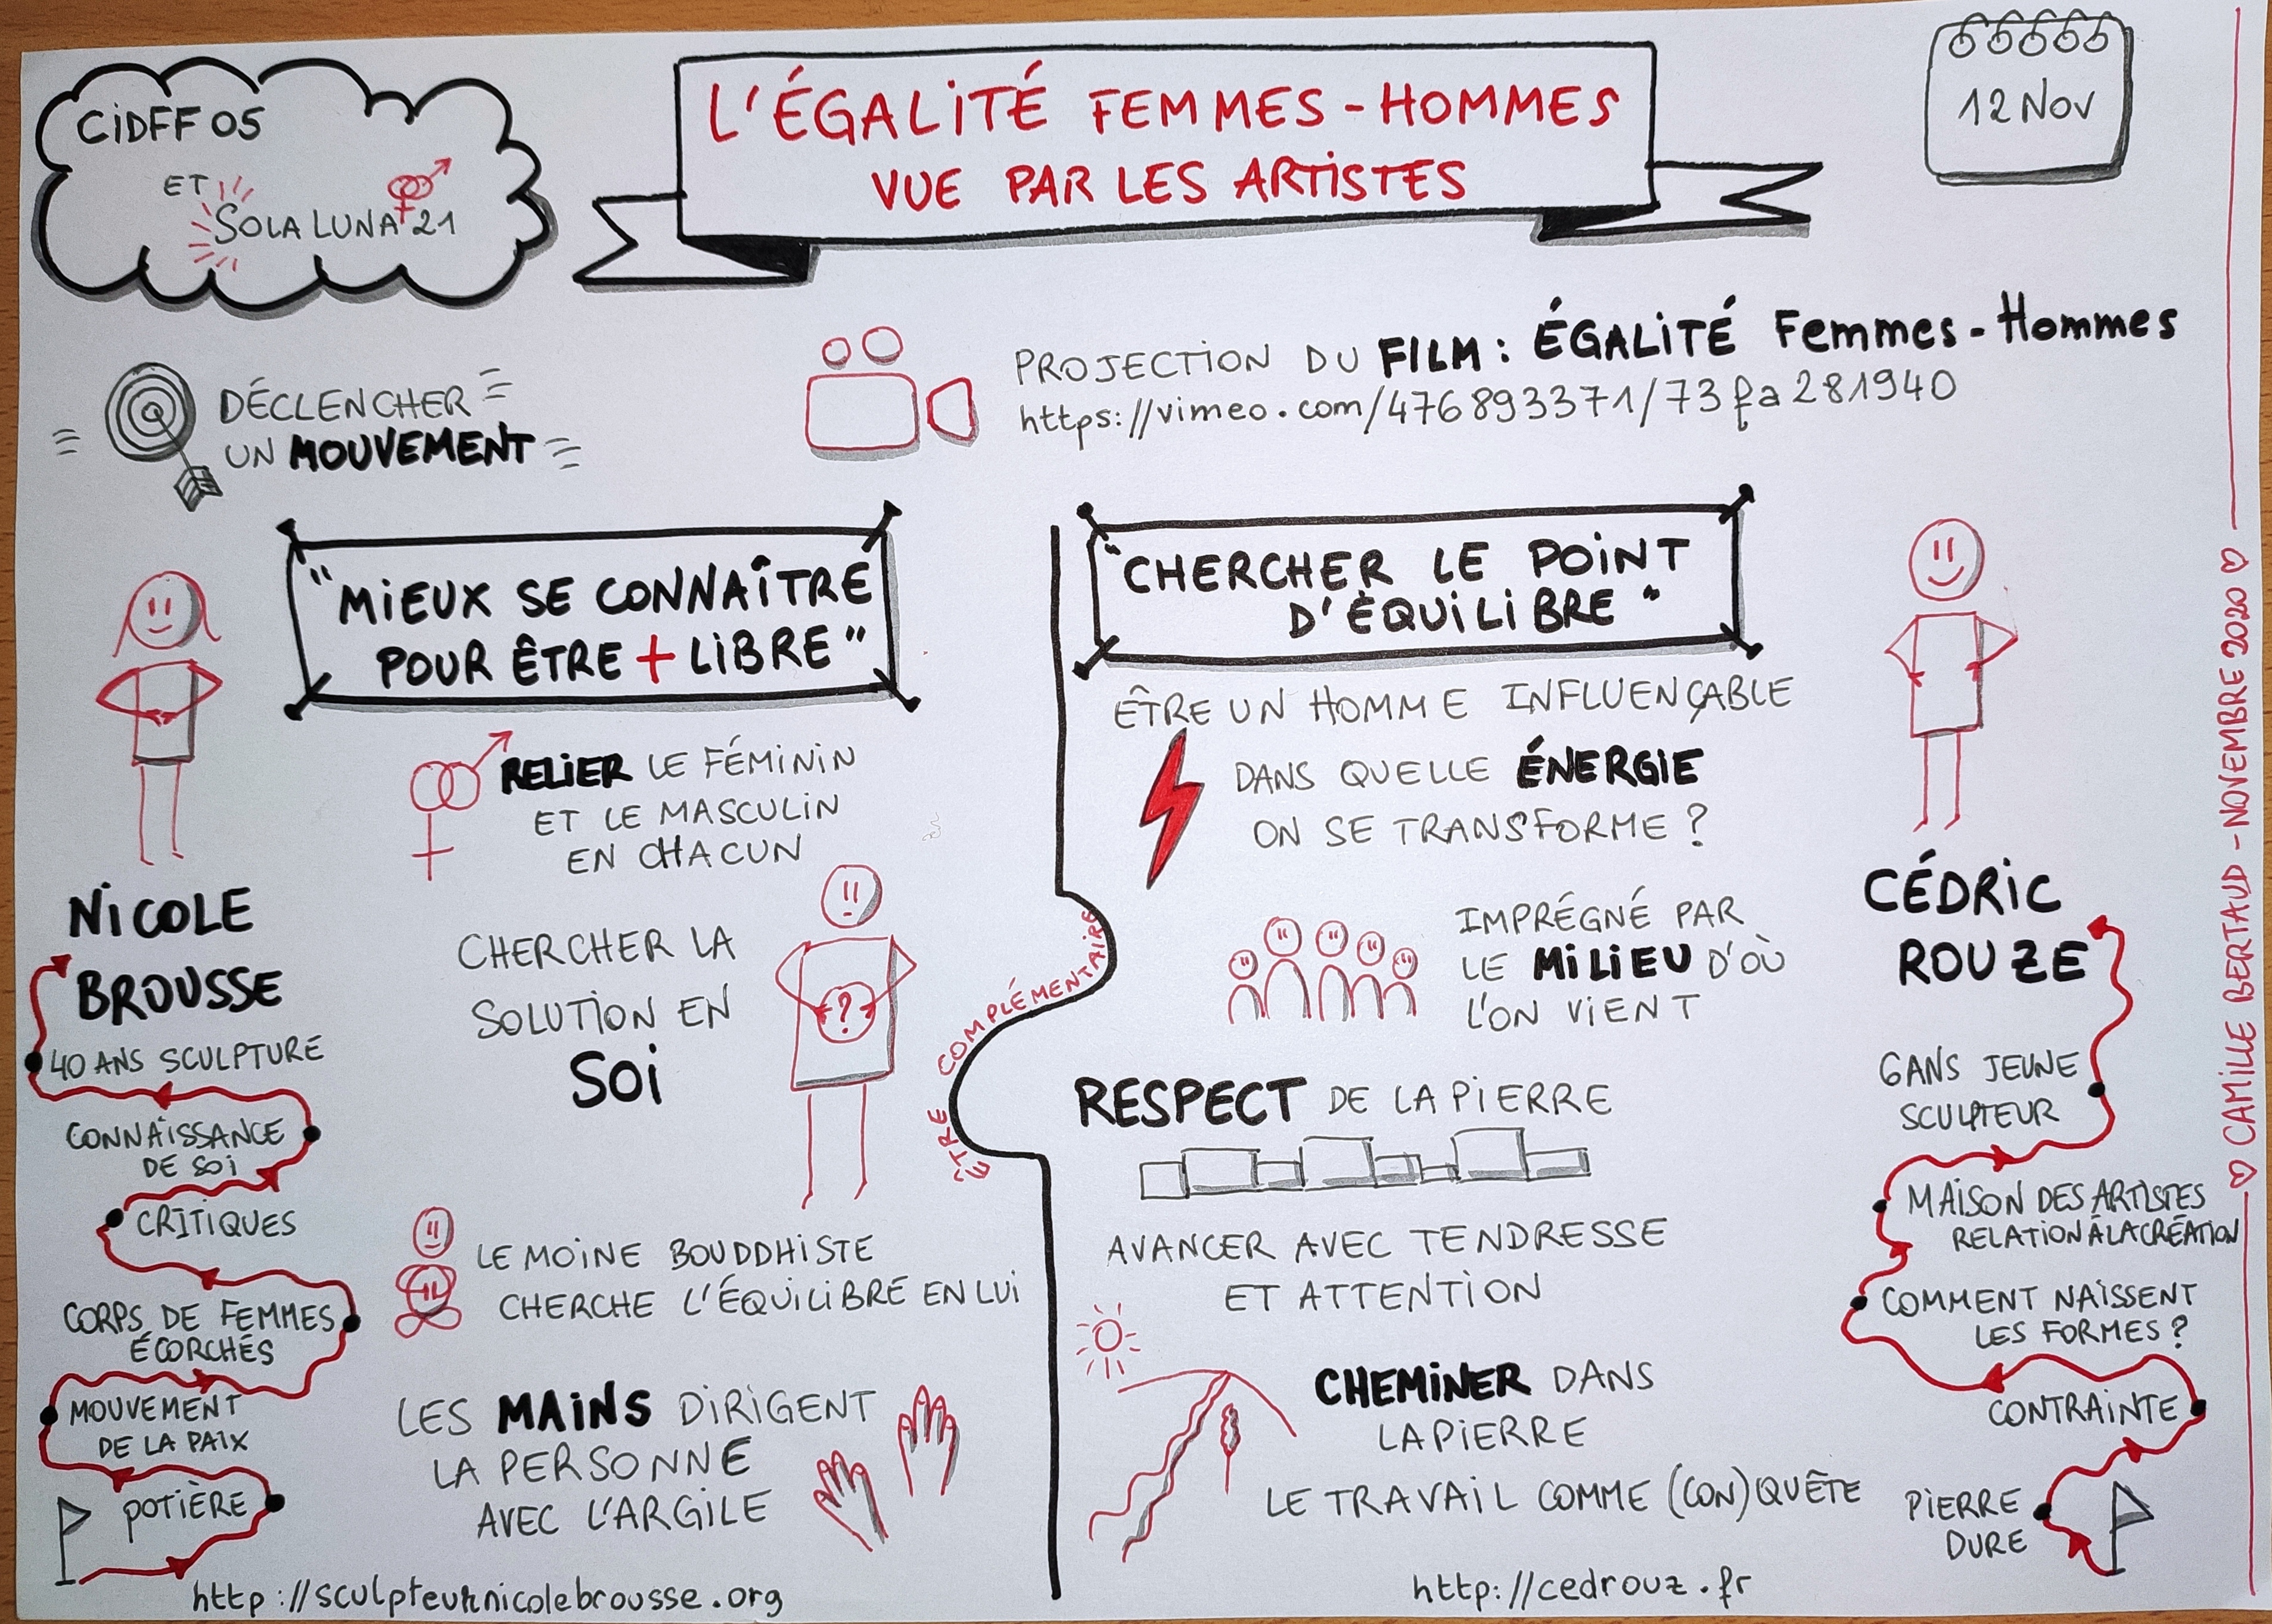 CiDFF 05
ET
SOLA LUNA 21
L'ÉGALiTÉ FEMMES-HOMMES
VUE PAR LES ARTiSTES
12 NOV
DÉCLENCHER
UN MOUVEMENT
PROJECTiON DU FiLM : ÉGALiTÉ Femmes-Hommes
https://vimeo.com/476893371/73fa281940
"MiEUX SE CONNAÎTRE
POUR ÊTRE + LiBRE"
RELiER LE FÉMiNiN
ET LE MASCULiN
EN CHACUN
NiCOLE
BROUSSE
40 ANS SCULPTURE
CONNAiSSANCE
DE SOi
CRiTiQUES
CORPS DE FEMMES
ÉCORCHÉS
MOUVEMENT
DE LA PAiX
POTiÈRE
CHERCHER LA
SOLUTiON EN
SOi
?
LE MOiNE BOUDDHiSTE
CHERCHE L'ÉQUiLiBRE EN LUi
LES MAiNS DiRiGENT
LA PERSONNE
AVEC L'ARGiLE
http://sculpteurnicolebrousse.org
ÊTRE COMPLÉMENTAiRE
"CHERCHER LE POiNT
D'ÉQUiLiBRE"
ÊTRE UN HOMME INFLUENÇABLE
DANS QUELLE ÉNERGiE
ON SE TRANSFORME ?
IMPRÉGNÉ PAR
LE MiLiEU D'OÙ
L'ON ViENT
RESPECT DE LA PiERRE
AVANCER AVEC TENDRESSE
ET ATTENTiON
CHEMiNER DANS
LA PiERRE
LE TRAVAiL COMME (CON)QUÊTE
http://cedrouz.fr
CÉDRiC
ROUZE
6 ANS JEUNE
SCULPTEUR
MAiSON DES ARTiSTES
RELATiON À LA CRÉATiON
COMMENT NAiSSENT
LES FORMES ?
CONTRAiNTE
PiERRE
DURE
♡ CAMiLLE BERTAUD - NOVEMBRE 2020 ♡